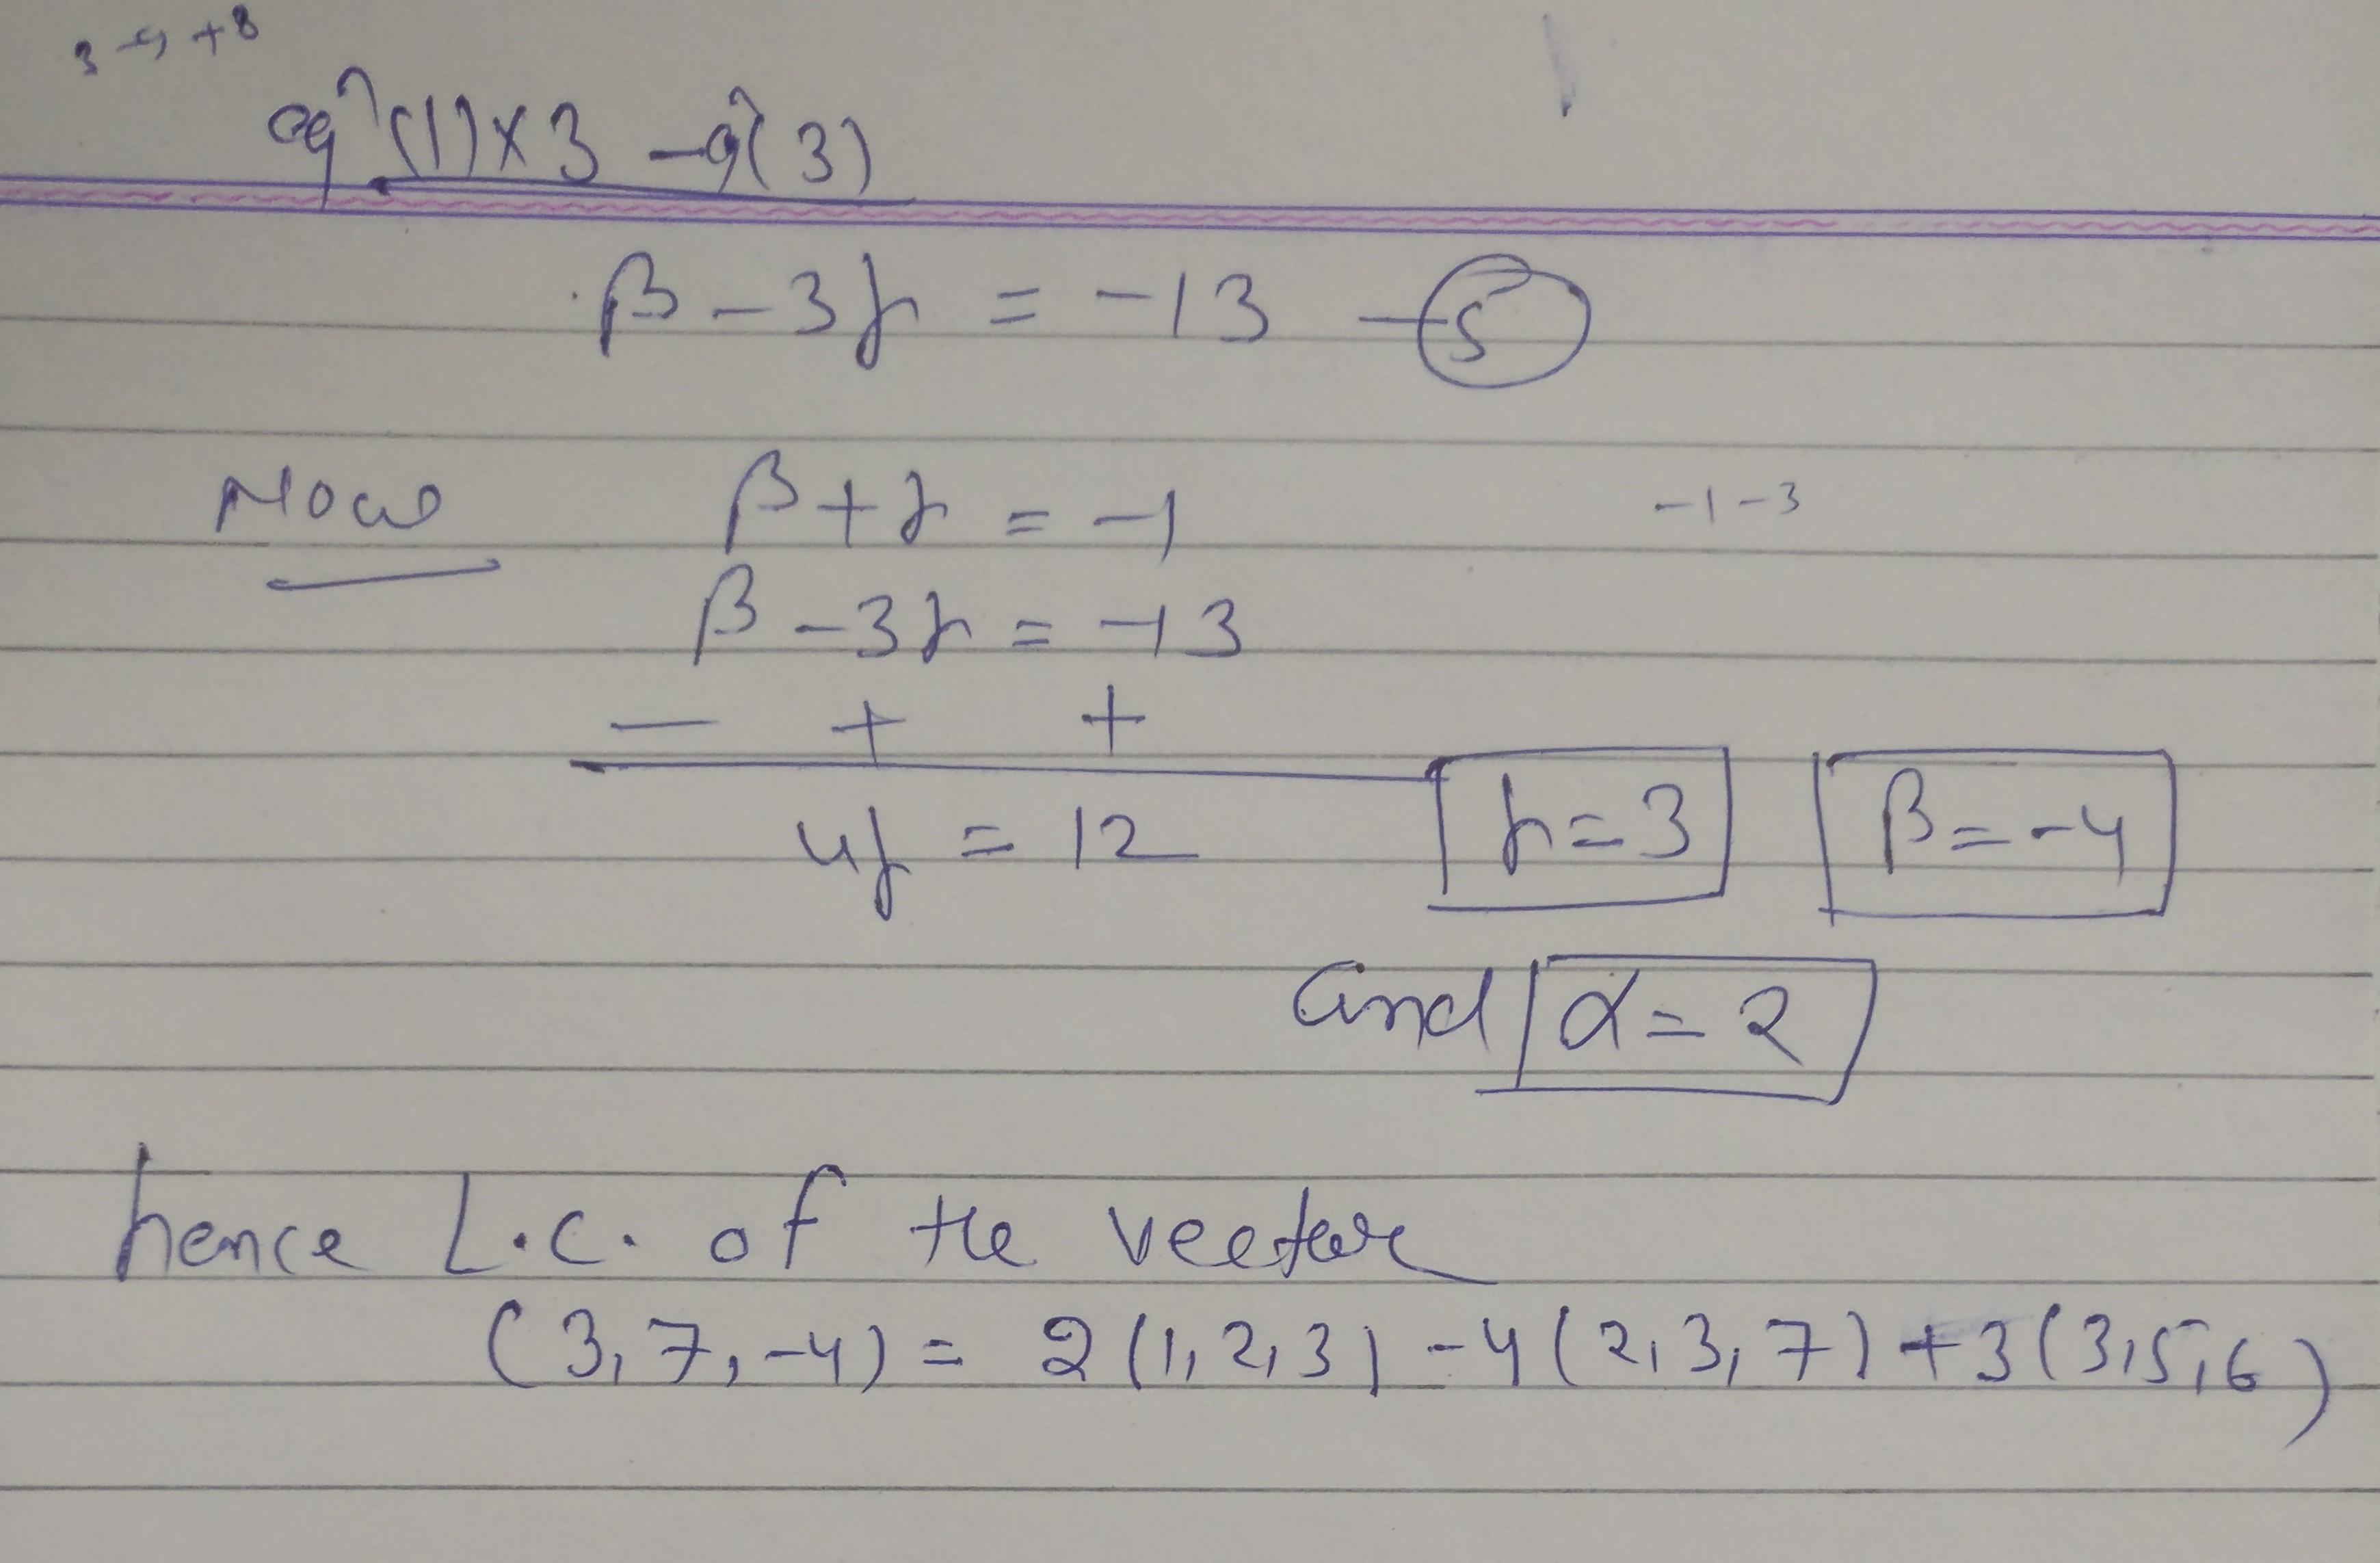 3 -9 +8
eqⁿ (1) × 3 - eqⁿ (3)
β - 3γ = -13 - 5
Now β + γ = -1 -1-3
β - 3γ = -13
- + +
4γ = 12 γ = 3 β = -4
and α = 2
hence L.C. of the vector
(3, 7, -4) = 2 (1, 2, 3) - 4 (2, 3, 7) + 3 (3, 5, 6)